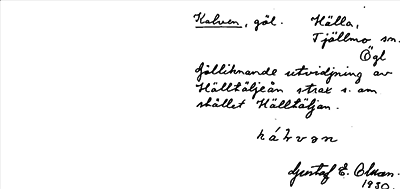 Kalven, göl. Hälla,
Tjällmo sn.
Ögl
Gölliknande utvidgning av
Hälltäljeån strax s. om
stället Hälltäljan.
kálvan
Gustaf E. Olsson.
1930.